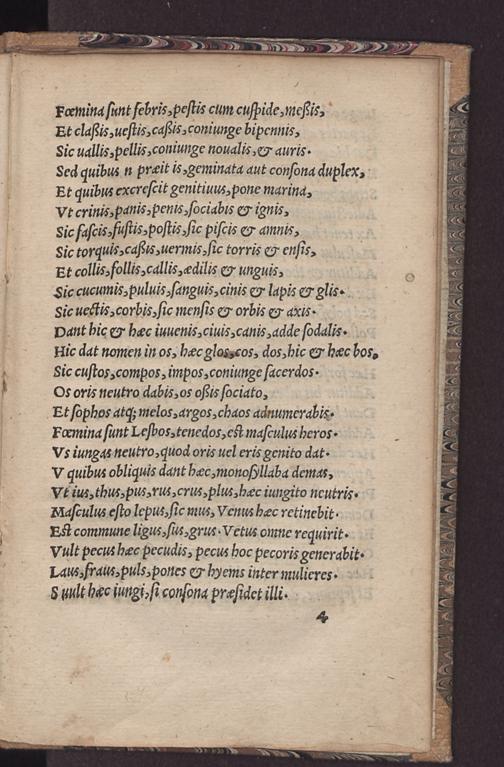 Fœmina ſunt febris, peſtis cum cuſpide, meßis,
Et claßis, ueſtis, caßis, coniunge bipennis,
Sic uallis, pellis, coniunge noualis, & auris.
Sed quibus n præit is, geminata aut conſona duplex,
Et quibus excreſcit genitiuus, pone marina,
Vt crinis, panis, penis, ſociabis & ignis,
Sic faſcis, fuſtis, poſtis, ſic piſcis & amnis,
Sic torquis, caßis, uermis, ſic torris & enſis,
Et collis, follis, callis, ædilis & unguis,
Sic cucumis, puluis, ſanguis, cinis & lapis & glis.
Sic uectis, corbis, ſic menſis & orbis & axis.
Dant hic & hæc iuuenis, ciuis, canis, adde ſodalis.
Hic dat nomen in os, hæc glos, cos, dos, hic & hæc bos,
Sic cuſtos, compos, impos, coniunge ſacerdos.
Os oris neutro dabis, os oßis ſociato,
Et ſophos atq; melos, argos, chaos adnumerabis.
Fœmina ſunt Lesbos, tenedos, eſt maſculus heros.
Vs iungas neutro, quod oris uel eris genito dat.
V quibus obliquis dant hæc, monoſyllaba demas,
Vt ius, thus, pus, rus, crus, plus, hæc iungito neutris.
Maſculus eſto lepus, ſic mus, Venus hæc retinebit.
Eſt commune ligus, ſus, grus. Vetus omne requirit.
Vult pecus hæc pecudis, pecus hoc pecoris generabit.
Laus, fraus, puls, pones & hyems inter mulieres.
S uult hæc iungi, ſi conſona præſidet illi.
4